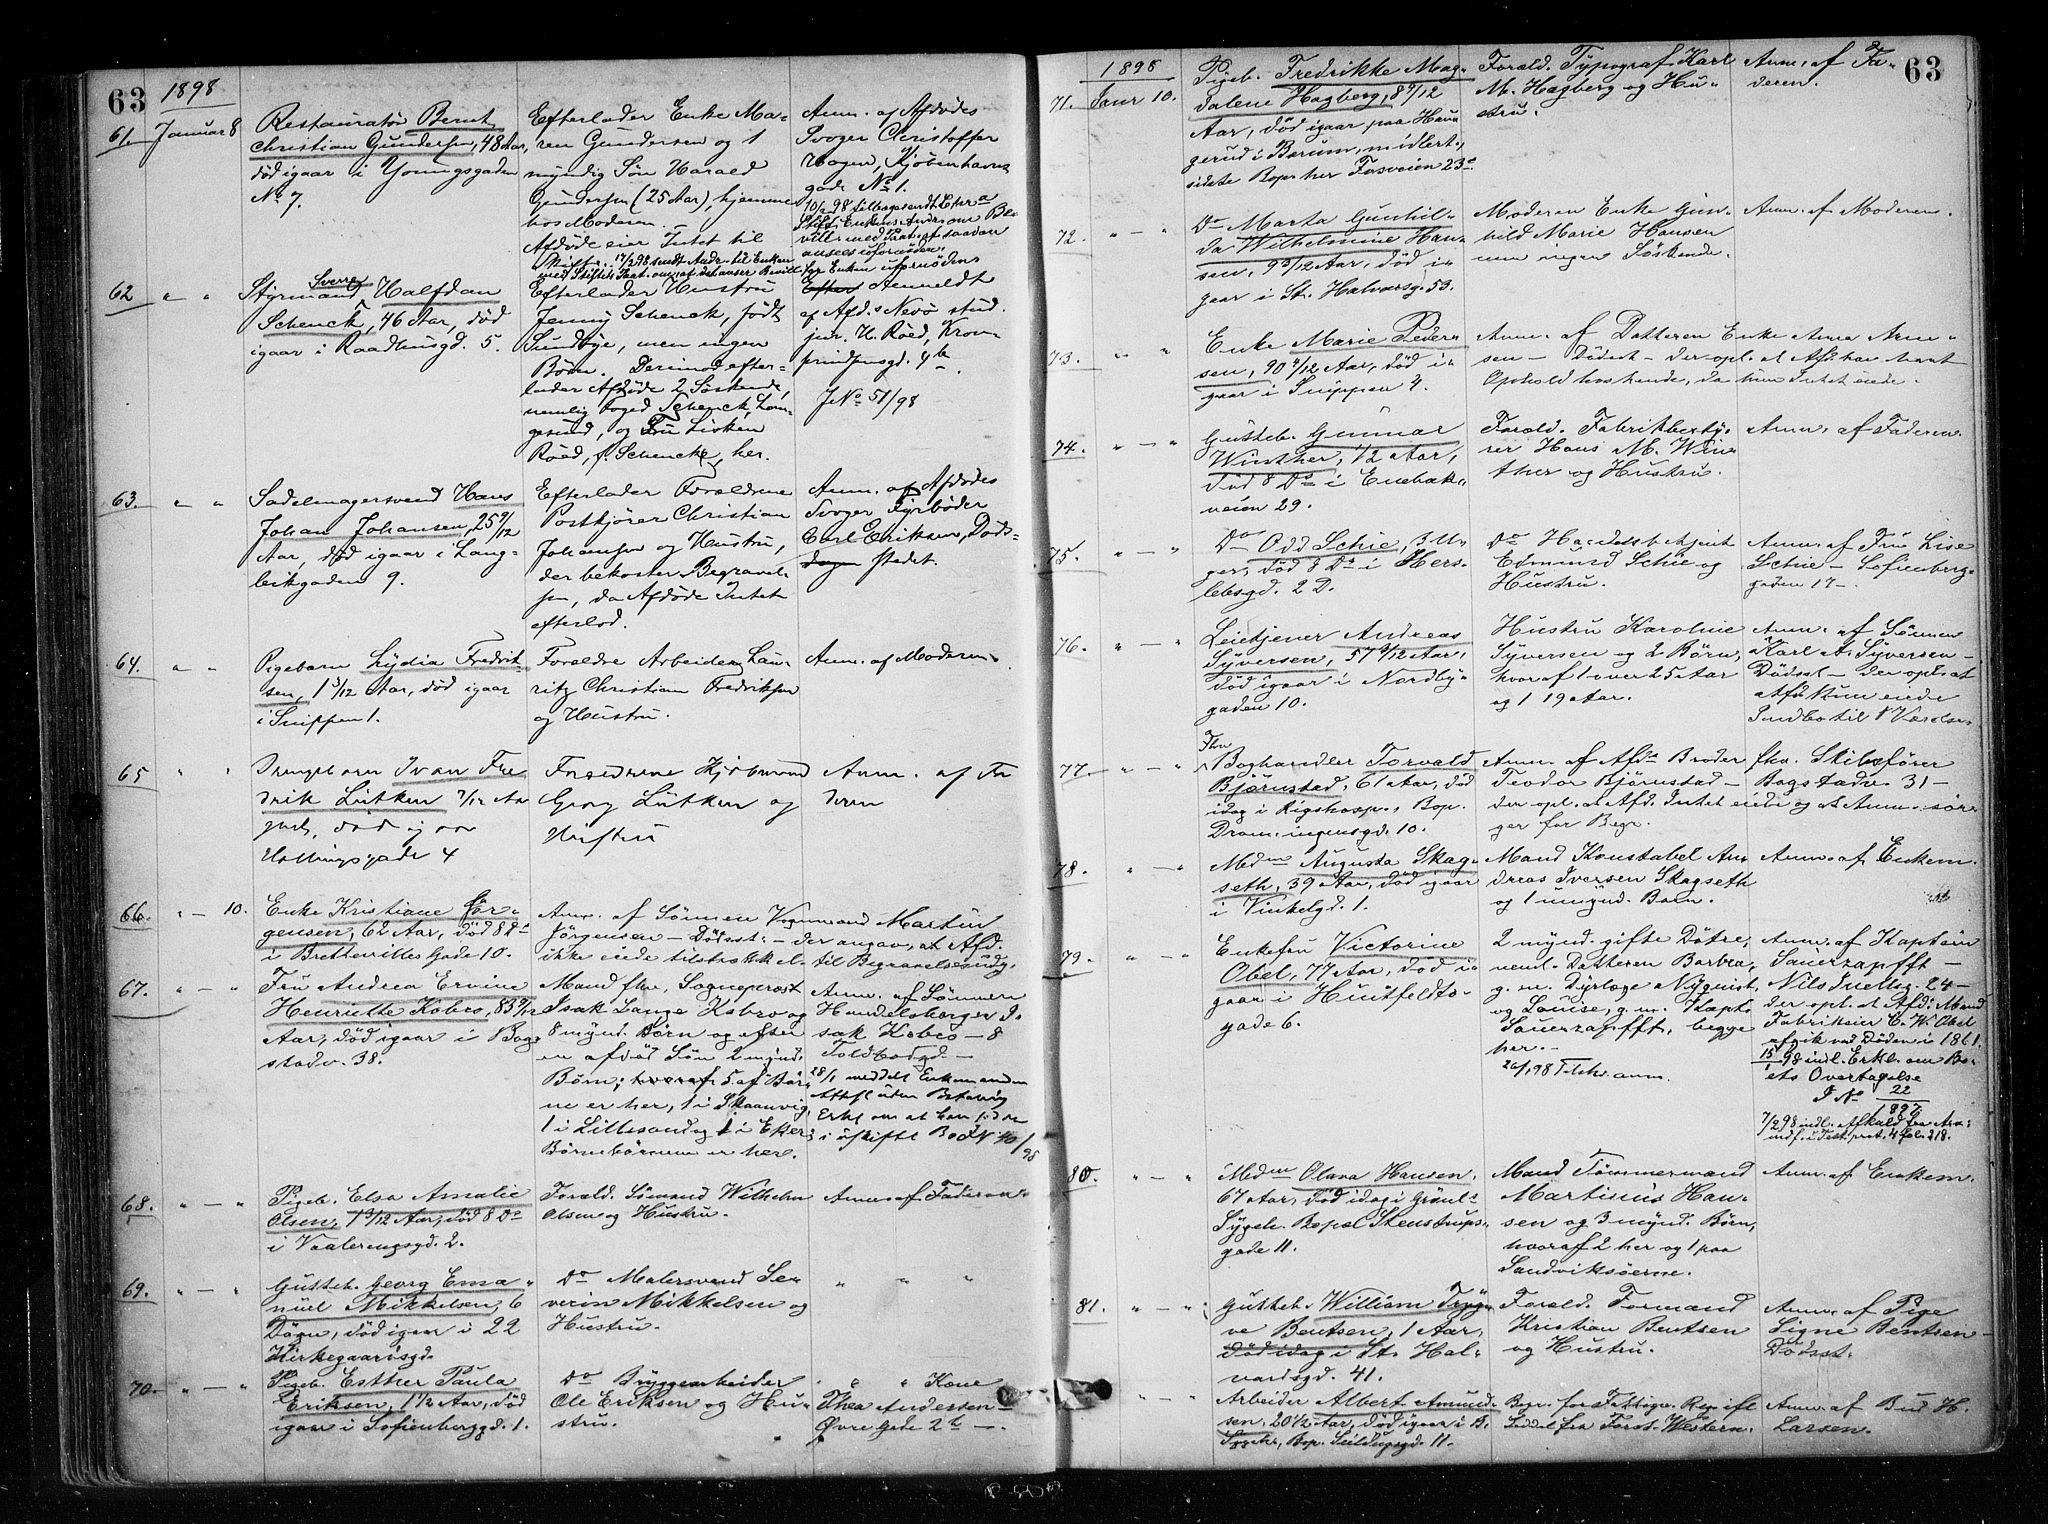 63
1898
61. Januar 8
Restauratør Bernt
Christian Gundersen, 48 Aar,
død igaar i Youngsgaden
No 7.
Efterlader Enke Ma-
ren Gundersen og 1
myndig Søn Harald
Gundersen (25 Aar), hjemme
hos Moderen.
Afdøde eier Intet til
Skifte.
Anm. af Afdødes
Svoger Christoffer
Hagen, Kjøbenhavns
gade No 1.
62 " "
Styrmand Sverre Halfdan
Schenck, 46 Aar, død
igaar i Raadhusgd. 5.
Efterlader Hustru
Jenny Schenck, født
Sundbye, men ingen
Børn. Derimod efter-
lader Afdøde 2 Søskende,
nemlig Foged Schenck, Lan-
gesund, og Fru Lisken
Røed, f. Schenck, her.
Anmeldt
af Afd.s Nevø stud.
jur. H. Røed, Kron-
prindsensgd. 4 b.
J No 51/98
63. " "
Sadelmagersvend Hans
Johan Johansen, 25 9/12
Aar, død igaar i Lang-
leikgaden 9.
Efterlader Forældrene
Postkjører Christian
Johansen og Hustru,
der bekoster Begravel-
sen, da Afdøde Intet
efterlod.
Anm. af Afdødes
Svoger Fyrbøder
Carl Eriksen, Døds-
stedet.
64. " "
Pigebarn Lydia Fredrik-
sen, 1 3/12 Aar, død igaar
i Snippen 1.
Forældre Arbeider Lau-
ritz Christian Fredriksen
og Hustru.
Anm. af Moderen.
65 " "
Drengebarn Ivan Fre
drik Lütken 7/12 Aar
død igaar
gade 4
Forældrene Kjøbmand
Georg Lütken og
Hustru
Anm. af Fa
deren
66. " — 10.
Enke Kristiane Jør-
gensen, 62 Aar, død 8 Ds
i Bretteville's Gade 10.
Anm. af Sønnen Vognmand Martin
Jørgensen — Dødsst. — der angav, at Afd.
ikke eiede tilstrækkel. til Begravelsesudg.
67. " — "
Fru Andrea Ervine
Henriette Kobro, 83 9/12
Aar, død igaar i Bog-
stadv. 38.
Mand fhv. Sogneprest
Isak Lange Kobro og
8 mynd. Børn og efter
en afdød Søn 2 mynd.
Børn; hvoraf 5 af Bør-
ne er her, 1 i Skaanvig,
1 i Lillesand og 1 i Eker;
Børnebørnene er her.
Anm. af Sønnen
Handelsborger I-
sak Kobro — 8
Toldbodgd. —
28/1 meddelt Enkemanden
Attest uden Betaling
68. " — "
Pigeb. Elsa Amalie
Olsen, 1 9/12 Aar, død 8 Ds
i Vaalerengsgd. 2.
Foræld. Sømand Wilhelm
Olsen og Hustru.
Anm. af Faderen.
69. " — "
Gutteb. Georg Ema-
nuel Mikkelsen, 6
Døgn, død igaar i 22
Kirkegaardsgd.
Do Malersvend Se-
verin Mikkelsen og
Hustru.
" " "
70. " — "
Pigeb. Esther Paula
Eriksen, 1 1/2 Aar, død
igaar i Sofienberggd. 1.
Do Bryggearbeider
Ole Eriksen og Hu-
stru.
" " Kone
Thea Andersen
Øvre Gade 2 b —.
63
1898
71. Janr 10.
Pigeb. Fredrikke Mag-
dalene Hagberg, 8 9/12
Aar, død igaar paa Hau
gerud i Bærum, midlert.,
sidste Bop. her Fossveien 23 c.
Foræld. Typograf Karl
M. Hagberg og Hu-
stru.
Anm. af Fa-
deren.
72. " — "
Do Marta Gunhil-
da Wilhelmine Han-
sen, 9 9/12 Aar, død i-
gaar i St. Halvorsg. 53.
Moderen Enke Gun-
hild Marie Hansen
men ingen Søskende.
Anm. af Moderen.
73. " "
Enke Marie Peder-
sen, 90 4/12 Aar, død i-
gaar i Snippen 4.
Anm. af Datteren Enke Anna Arne-
sen — Dødsst — der opl. at Afd. har havt
Ophold hos hende, da hun Intet eiede.
74. " — "
Gutteb. Gunnar
Winther, 1/2 Aar,
død 8 Ds i Enebak-
veien 29.
Foræld. Fabrikbesty-
rer Hans M. Win-
ther og Hustru.
Anm. af Faderen.
75. " — "
Do Odd Schie, 3 U-
ger, død 8 Ds i Hers-
lebsgd. 2 D.
Do Handelsbetjent
Edmund Schie og
Hustru.
Anm. af Fru Lise
Schie — Sofienberg-
gaden 17 —
76. " — "
Leietjener Andreas
Syversen, 57 9/12 Aar,
død igaar i Nordby-
gaden 10.
Hustru Karoline
Syversen og 2 Børn,
hvoraf 1 over 25 Aar
og 1 19 Aar.
Anm. af Sønnen
Karl A. Syversen —
Dødsst — der opl. at
Afd. kun eiede
Indbo til
77. " — "
Fhv.
Boghandler Torvald
Bjørnstad, 61 Aar, død
idag i Rigshosp., Bop.
Drammensgd. 10.
Anm. af Afds Broder fhv. Skibsfører
Teodor Bjørnstad — Bogstadv. 31 —
der opl. at Afd. Intet eiede og at Anm. sør-
ger for Begr.
78. " — "
Medm Augusta Skag-
seth, 39 Aar, død igaar
i Vinkelgd. 1.
Mand Konstabel An
dreas Iversen Skagseth
og 1 umynd. Barn.
Anm. af Enkem.
79. " — "
Enkefru Victorine
Obel, 77 Aar, død i-
gaar i Huitfeldts-
gade 6.
2 mynd. gifte Døtre,
neml. Datteren Barbra,
g. m. Dyrlæge Nyquist,
og Louise, g. m. Kapt.
Sauerzapfft, begge
her. —
Anm. af Kaptein
Sauerzapfft —
Nils Juelsg. 24 —
der opl. at Afd.s Mand
Fabrikeier C. W. Obel
afgik ved Døden i 1861.
15/1 98 indl. Erkl. om Bo-
ets Overtagelse
J No 22/1897
80. " — "
Medm Olava Hansen,
67 Aar, død idag i Grønl.s
Sygeh. Bopæl Stenstrups-
gade 11.
Mand Tømmermand
Martinus Han-
sen og 3 mynd. Børn,
hvoraf 2 her og 1 paa
Sandviksøerne.
Anm. af Enkem.
81. " — "
Gutteb. William Tryg-
ve Bentsen, 1 Aar,
død idag i St. Hal-
vardsgd. 41.
Foræld. Formand
Kristian Bentsen
og Hustru.
Anm. af Pige
Signe Bentsen —
Dødsst.
" — "
Arbeider Albert Amund-
sen, 20 1/2 Aar, død igaar i B.
Sygeh., Bop. Seildugsgd. 11.
Begr. for Fattigv. Regn. ifl.
Seddel fra Forst. Western.
Anm. af Bud H.
Larsen.